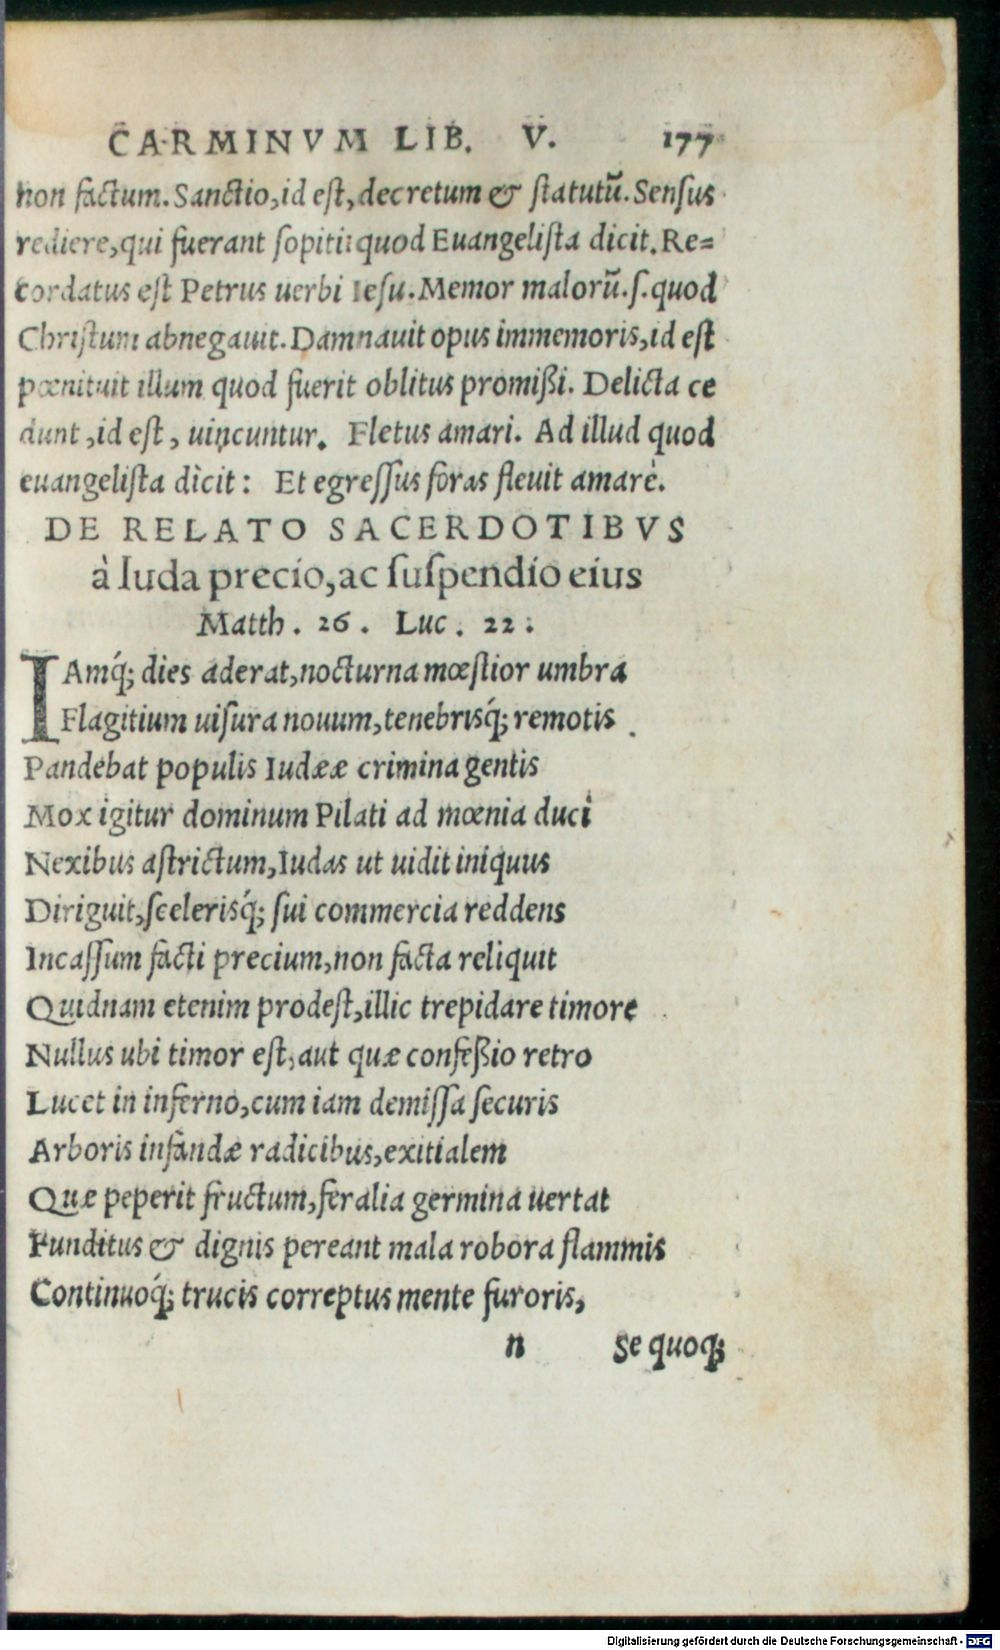 CARMINVM LIB. V. 177
non factum. Sanctio, id est, decretum & statutũ. Sensus
rediere, qui fuerant sopiti: quod Euangelista dicit. Re=
cordatus est Petrus uerbi Iesu. Memor malorũ. s. quod
Christum abnegauit. Damnauit opus immemoris, id est
pœnituit illum quod fuerit oblitus promißi. Delicta ce
dunt, id est, uincuntur. Fletus amari. Ad illud quod
euangelista dicit: Et egressus foras fleuit amarè.
DE RELATO SACERDOTIBVS
à Iuda precio, ac suspendio eius
Matth. 26. Luc. 22.
IAmq́; dies aderat, nocturna mœstior umbra
Flagitium uisura nouum, tenebrisq́; remotis
Pandebat populis Iudææ crimina gentis
Mox igitur dominum Pilati ad mœnia duci
Nexibus astrictum, Iudas ut uidit iniquus
Diriguit, scelerisq́; sui commercia reddens
Incassum facti precium, non facta reliquit
Quidnam etenim prodest, illic trepidare timore
Nullus ubi timor est, aut quæ confeßio retro
Lucet in inferno, cum iam demissa securis
Arboris infandæ radicibus, exitialem
Quæ peperit fructum, feralia germina uertat
Funditus & dignis pereant mala robora flammis
Continuoq́; trucis correptus mente furoris,
n Se quoq;
Digitalisierung gefördert durch die Deutsche Forschungsgemeinschaft - DFG